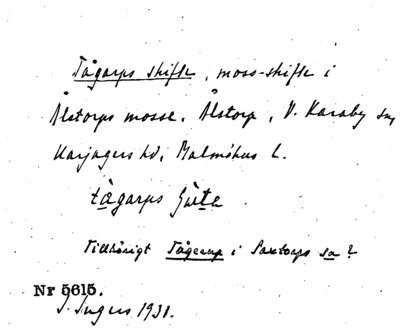 Tågarps skifte, moss-skifte i
Ålstorps mosse. Ålstorp, V. Karaby sn,
Harjagers hd, Malmöhus l.
tågarps
Tillhörigt Tågerup i Saxtorps sn?
Nr 5615.
J. Ingers 1931.